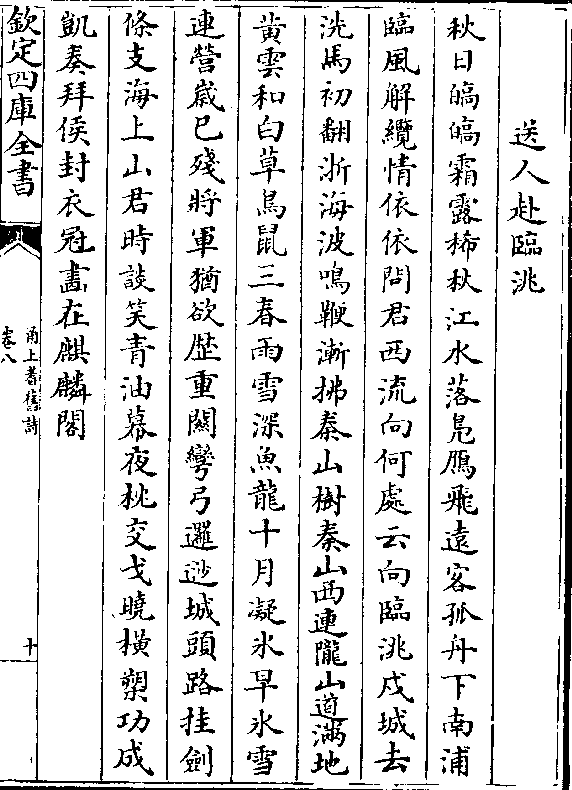 送人赴臨洮
秋日皜皜霜露稀秋江水落鳬鴈飛遠客孤舟下南浦
臨風解纜情依依問君西流向何處云向臨洮戍城去
洗馬初翻浙海波鳴鞭漸拂秦山樹秦山西連隴山道滿地
黄雲和白草鳥鼠三春雨雪深魚龍十月凝氷早氷雪
連營歲已殘將軍猶欲歴重闗彎弓邏逤城頭路挂劍
條支海上山君時談笑青油幕夜枕交戈曉横槊功成
凱奏拜侯封衣冠畫在麒麟閣
欽定四庫全書
甬上耆舊詩
卷八
十